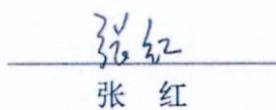 张红
张 红